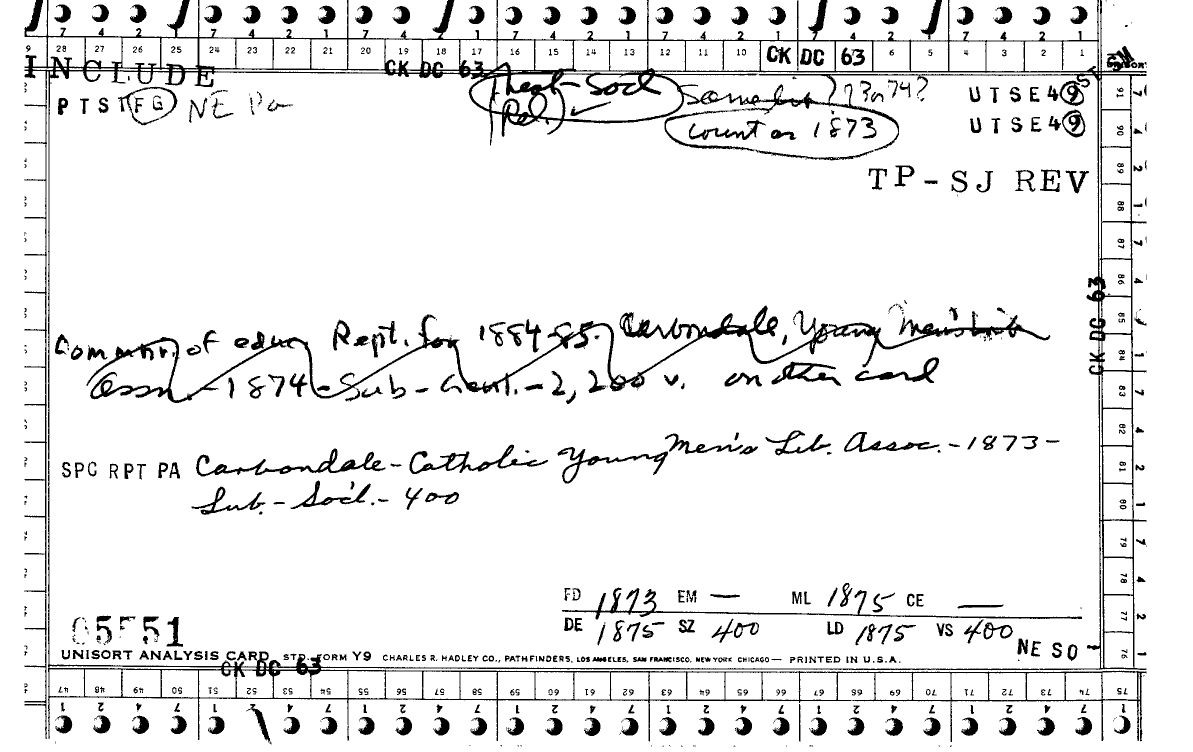 7 4 2 1 7 4 2 1 7 4 2 1 7 4 2 1 7 4 2 1 7 4 2 1 7 4 2 1
28 27 26 25 24 23 22 21 20 19 18 17 16 15 14 13 12 11 10 CK DC 63 6 5 4 3 2 1
INCLUDE CK DC 63
PTST FG NE Pa
Soc'l
(Rel.) ✓
Same lib? 73 or 74?
count as 1873
UTSE49
UTSE49
TP-SJ REV
CK DC 63
Common. of educ Rept. for 1884-85. Carbondale, Young Men's Lib
Assn. - 1874 - Sub - Genl. - 2,200 v. on other card
SPC RPT PA Carbondale - Catholic Young Men's Lib. Assoc. - 1873 -
Sub. - Soc'l. - 400
FD 1873 EM — ML 1875 CE —
DE 1875 SZ 400 LD 1875 VS 400
NE SO -
05551
UNISORT ANALYSIS CARD STD. FORM Y9 CHARLES R. HADLEY CO., PATHFINDERS, LOS ANGELES, SAN FRANCISCO, NEW YORK CHICAGO — PRINTED IN U.S.A.
CK DC 63
47 48 49 50 51 52 53 54 55 56 57 58 59 60 61 62 63 64 65 66 67 68 69 70 71 72 73 74 75
1 2 4 7 1 2 4 7 1 2 4 7 1 2 4 7 1 2 4 7 1 2 4 7 1 2 4 7 1
91 90 89 88 87 86 85 84 83 82 81 80 79 78 77 76